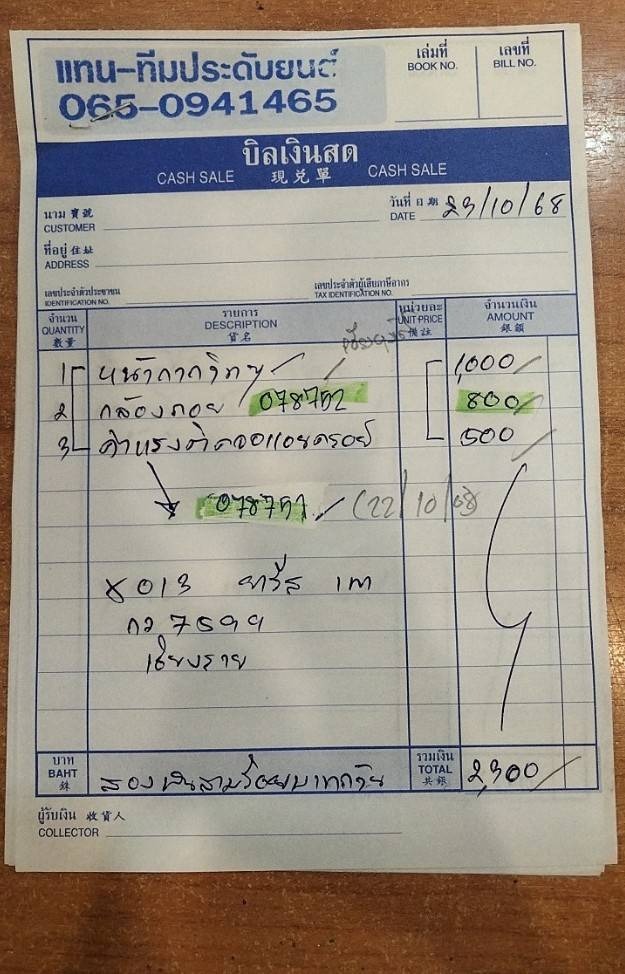 แทน-ทีมประดับยนต์
065-0941465
เล่มที่
BOOK NO.
เลขที่
BILL NO.
บิลเงินสด
CASH SALE 現兌單 CASH SALE
นาม 寳號
CUSTOMER
วันที่ 日期
DATE 23/10/68
ที่อยู่ 住址
ADDRESS
เลขประจำตัวประชาชน
IDENTIFICATION NO.
เลขประจำตัวผู้เสียภาษีอากร
TAX IDENTIFICATION NO.
จำนวน
QUANTITY
數量
รายการ
DESCRIPTION
貨名
หน่วยละ
UNIT PRICE
備註
จำนวนเงิน
AMOUNT
銀額
1 หน้ากาก 1,000
2 กล้องถอย 078752 800
3 ค่าแรงติดจอแอนดรอย์ 500
078751 (22/10/68)
8013 ยาริส เทา
กว 7699
เชียงราย
บาท
BAHT
銖
สองพันสามร้อยบาทถ้วน
รวมเงิน
TOTAL
共銀
2,300
ผู้รับเงิน 收貨人
COLLECTOR